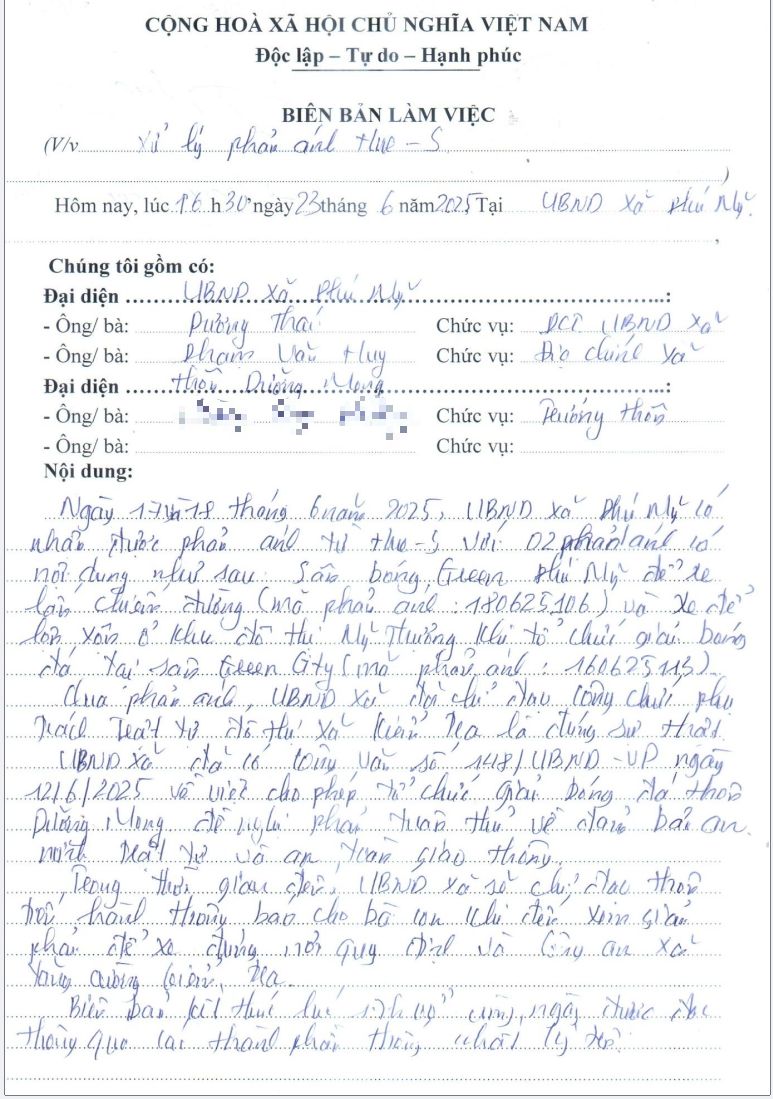 CỘNG HOÀ XÃ HỘI CHỦ NGHĨA VIỆT NAM
Độc lập – Tự do – Hạnh phúc
BIÊN BẢN LÀM VIỆC
(V/v Xử lý phản ánh Hue-S
)
Hôm nay, lúc 16 h 30' ngày 23 tháng 6 năm 2025 Tại UBND xã Phú Mỹ.
,
Chúng tôi gồm có:
Đại diện UBND xã Phú Mỹ :
- Ông/ bà: Dương Thái Chức vụ: PCT UBND xã
- Ông/ bà: Phạm Văn Huy Chức vụ: Địa chính xã
Đại diện thôn Dưỡng Mong :
- Ông/ bà: Chức vụ: Trưởng thôn
- Ông/ bà: Chức vụ:
Nội dung:
Ngày 17 và 18 tháng 6 năm 2025, UBND xã Phú Mỹ có
nhận được phản ánh từ Hue-S với 02 phản ánh có
nội dung như sau: Sân bóng Green Phú Mỹ để xe
lấn chiếm đường (mã phản ánh: 180625106) và xe để
lộn xộn ở khu đô thị Mỹ Thượng khi tổ chức giải bóng
đá tại sân Green City (mã phản ánh: 160625113).
Qua phản ánh, UBND xã đã chỉ đạo công chức phụ
trách trật tự đô thị xã kiểm tra là đúng sự thật.
UBND xã đã có công văn số 148/UBND-VP ngày
12/6/2025 về việc cho phép tổ chức giải bóng đá thôn
Dưỡng Mong đề nghị phải tuân thủ về đảm bảo an
ninh trật tự và an toàn giao thông.
Trong thời gian đến, UBND xã sẽ chỉ đạo thôn
hành thông báo cho bà con khi đến xem giải
phải để xe đúng nơi quy định và Công an xã
tăng cường kiểm tra.
Biên bản kết thúc lúc cùng ngày được đọc
thông qua các thành phần thống nhất ký tên.